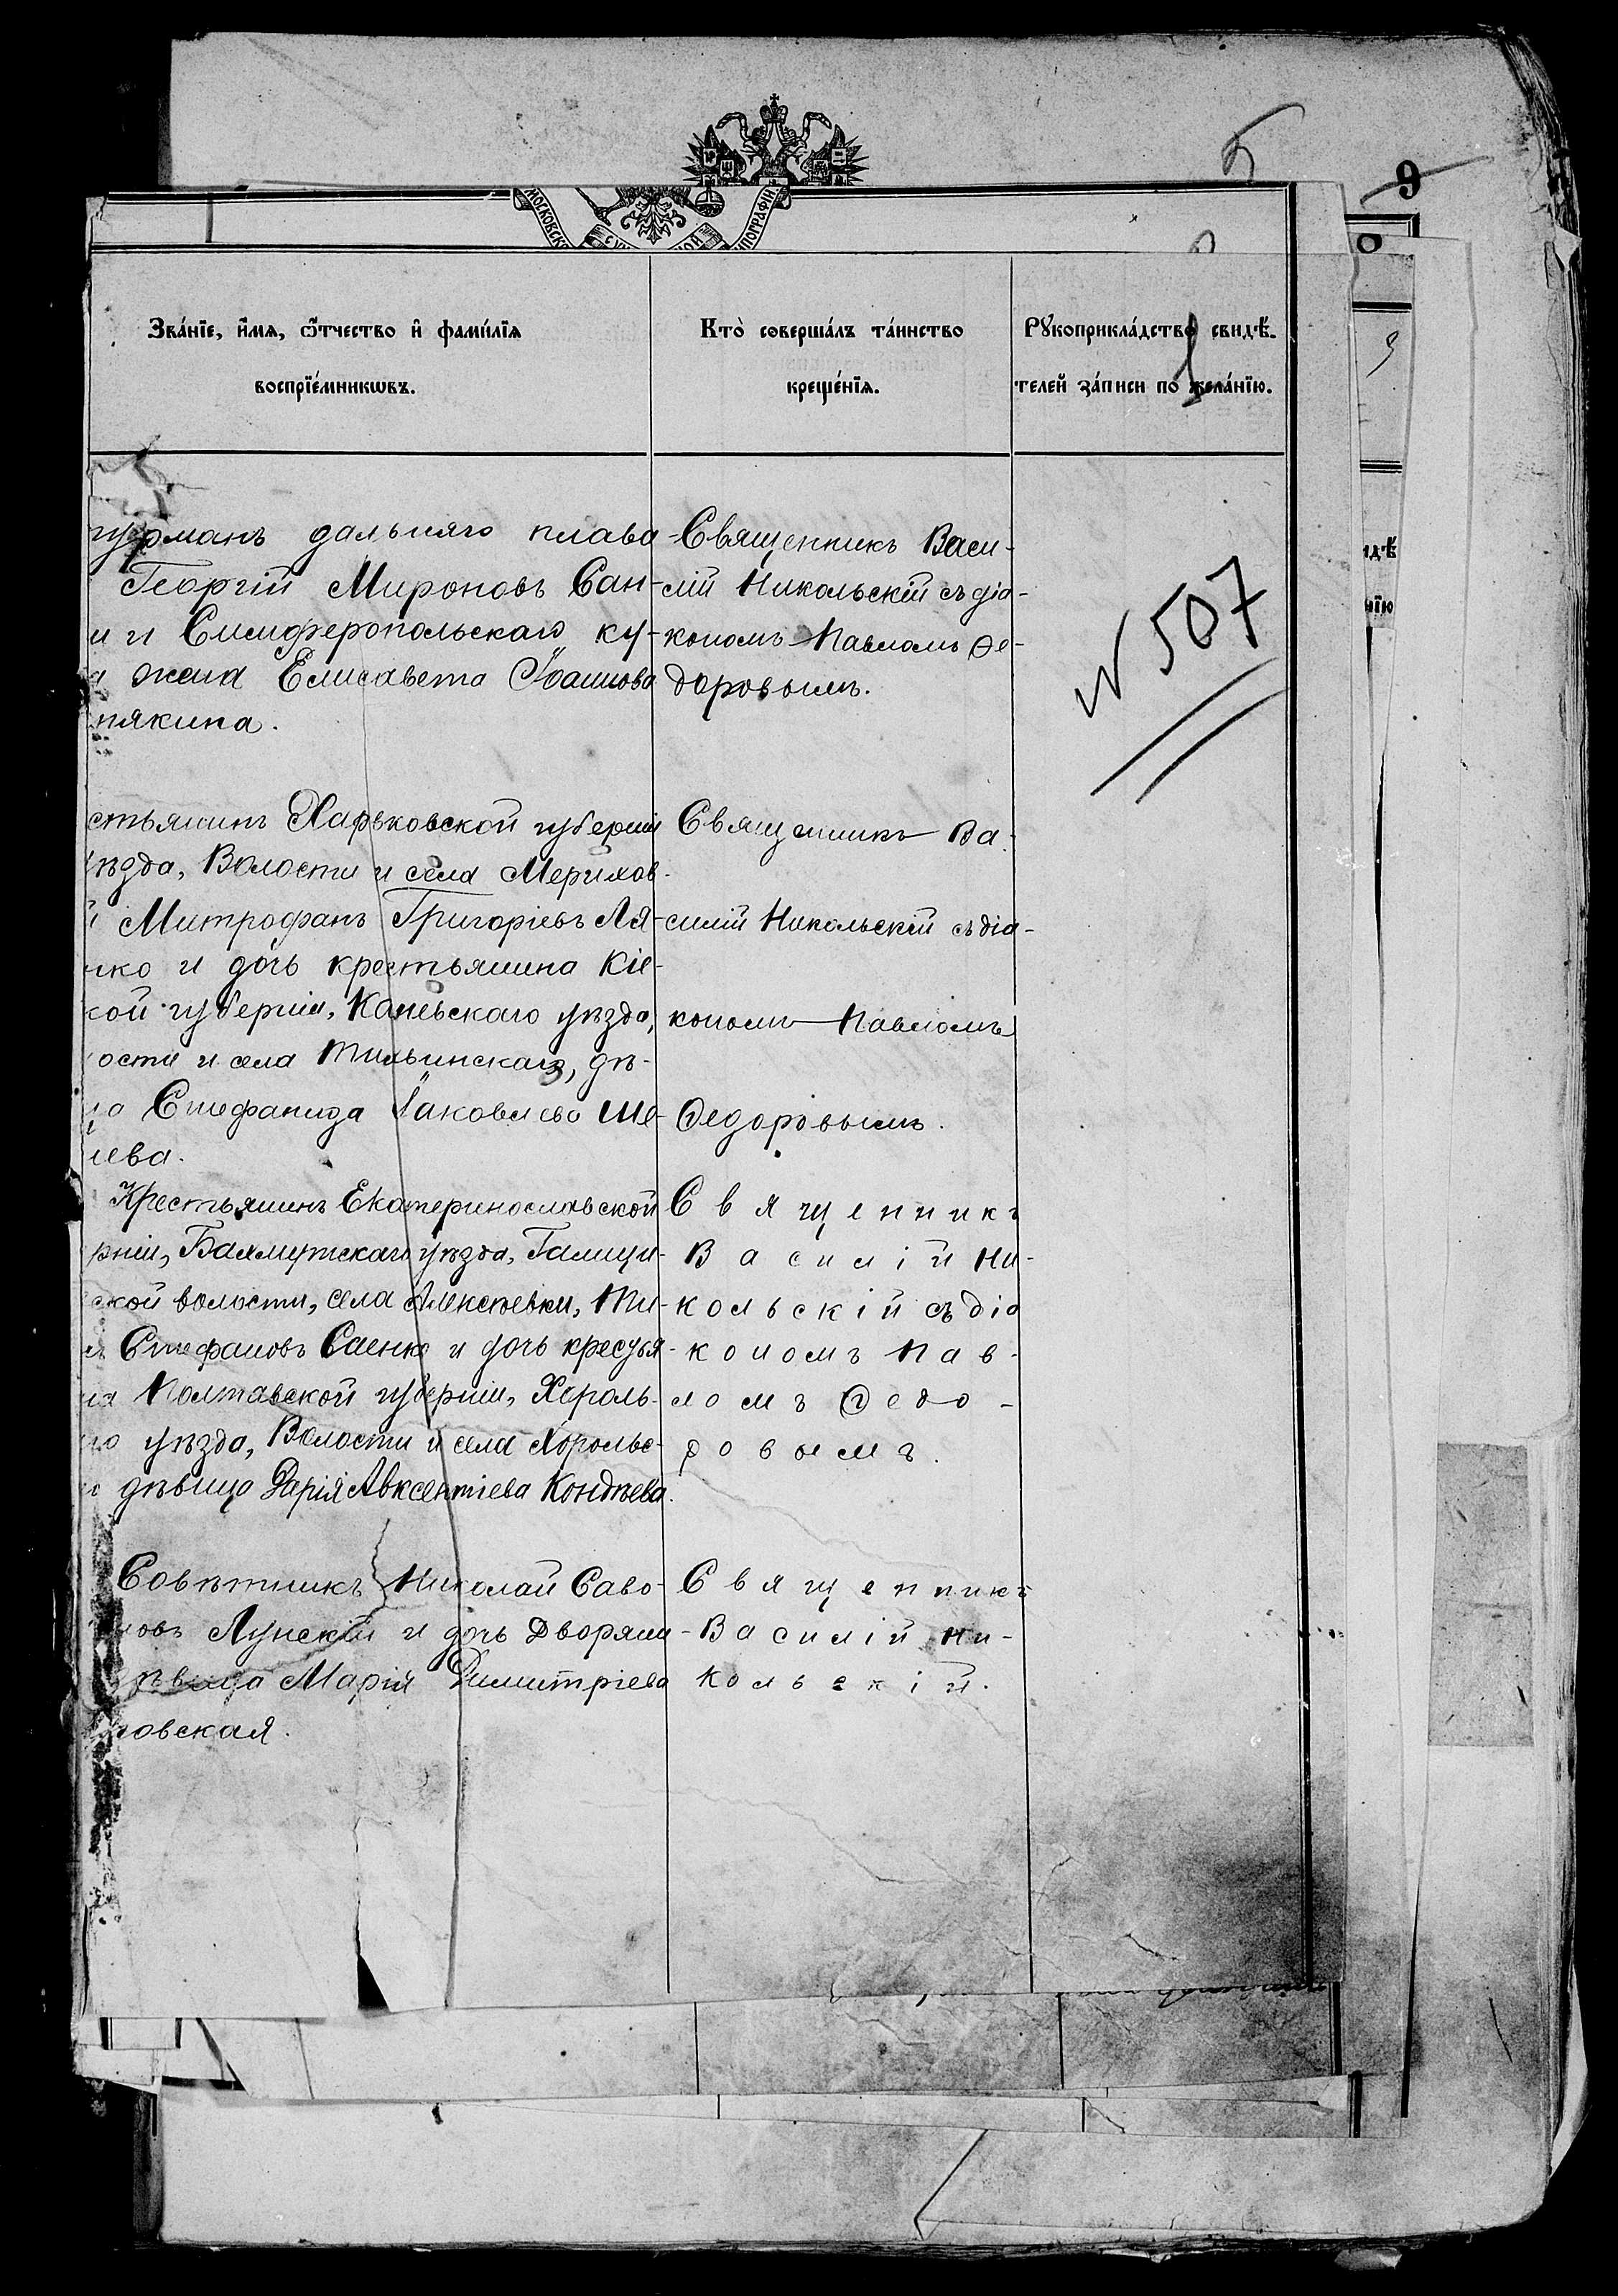 5
9
МОСКОВСК
ТИПОГРАФІИ
Зва́нїе, и҆́мѧ, ѻ҆́тчество и҆ фами́лїѧ
воспрїе́мникѡвъ.
Кто̀ соверша́лъ та́инство
креще́нїѧ.
Рꙋкоприкла́дство свидѣ́-
телей за́писи по жела́нїю.
идѣ
нїю
турманъ дальняго плава-
Георгій Мироновъ Сан-
и и Симферопольскаго ку-
а жена Елисавета Іоаннова
пякина.
Священникъ Васи-
лій Никольскій съ діа-
кономъ Павломъ Ѳе-
доровымъ.
N 507
стьянинъ Харьковской губерніи
ѣзда, Волости и села Мерихов-
й Митрофанъ Григоріевъ Ля-
нко и дочь крестьянина Кіе-
кой губерніи, Каневскаго уѣзда,
ости и села Тильинскаго, дѣ-
ца Стефанида Іаковлева Ше-
лева.
Священникъ Ва-
силій Никольскій съ діа-
кономъ Павломъ
Ѳедоровымъ.
Крестьянинъ Екатеринославской
рніи, Бахмутскаго уѣзда, Галици-
ской волости, села Алексѣевки, Ти-
Стефановъ Саенко и дочь крестья-
на Полтавской губерніи, Хероль-
го уѣзда, Волости и села Хорольс-
о дѣвица Дарія Авксентіева Кондѣева.
Священникъ
Василій Ни-
кольскій съ діа
кономъ Пав-
ломъ Ѳедо-
ровымъ.
Совѣтникъ Николай Саво-
новъ Лунскій и дочь Дворяни-
ѣвица Марія Димитріева
ловская.
Священникъ
Василій Ни-
кольскій.